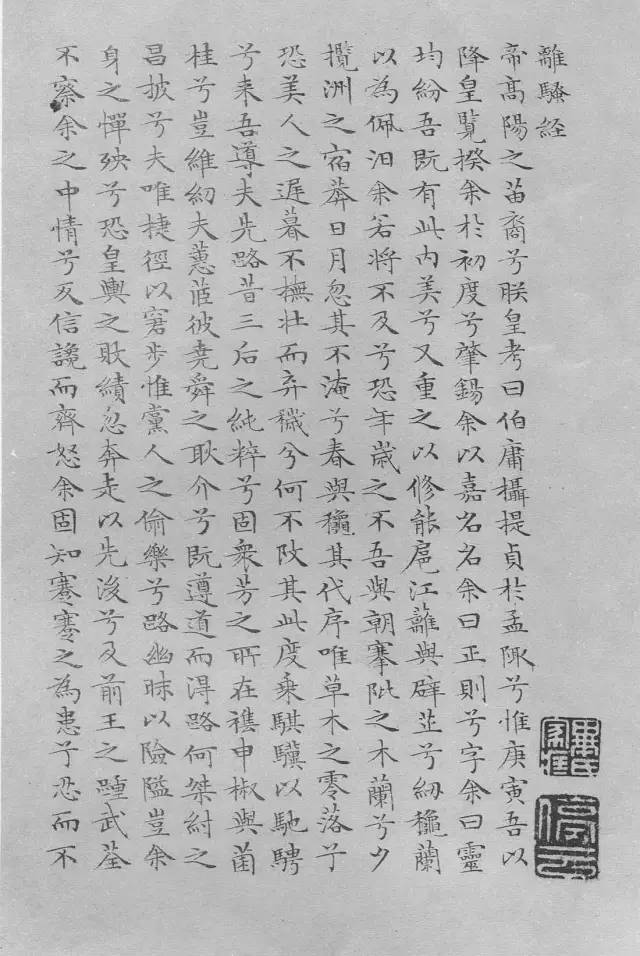 離騷経
帝髙陽之苗裔兮朕皇考曰伯庸攝提貞於孟陬兮惟庚寅吾以
降皇覽揆余於初度兮肇錫余以嘉名名余曰正則兮字余曰靈
均紛吾既有此内美兮又重之以修能扈江蘺與辟芷兮紉龝蘭
以為佩汨余若將不及兮恐年歲之不吾與朝搴阰之木蘭兮夕
攬洲之宿莽日月忽其不淹兮春與龝其代序唯草木之零落兮
恐美人之遲暮不撫壯而弃穢兮何不改其此度乗騏驥以馳騁
兮来吾導夫先路昔三后之純粹兮固衆芳之所在襍申椒與菌
桂兮豈維紉夫蕙茝彼堯舜之耿介兮既遵道而得路何桀紂之
昌披兮夫唯捷徑以窘步惟黨人之偷樂兮路幽昧以險隘豈余
身之憚殃兮恐皇輿之敗績忽奔走以先後兮及前王之踵武荃
不察余之中情兮反信讒而齊怒余固知謇謇之為患兮忍而不
停雲